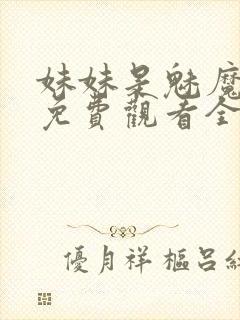 妹妹是魅魔
免費觀看全
優月祥樞呂紅